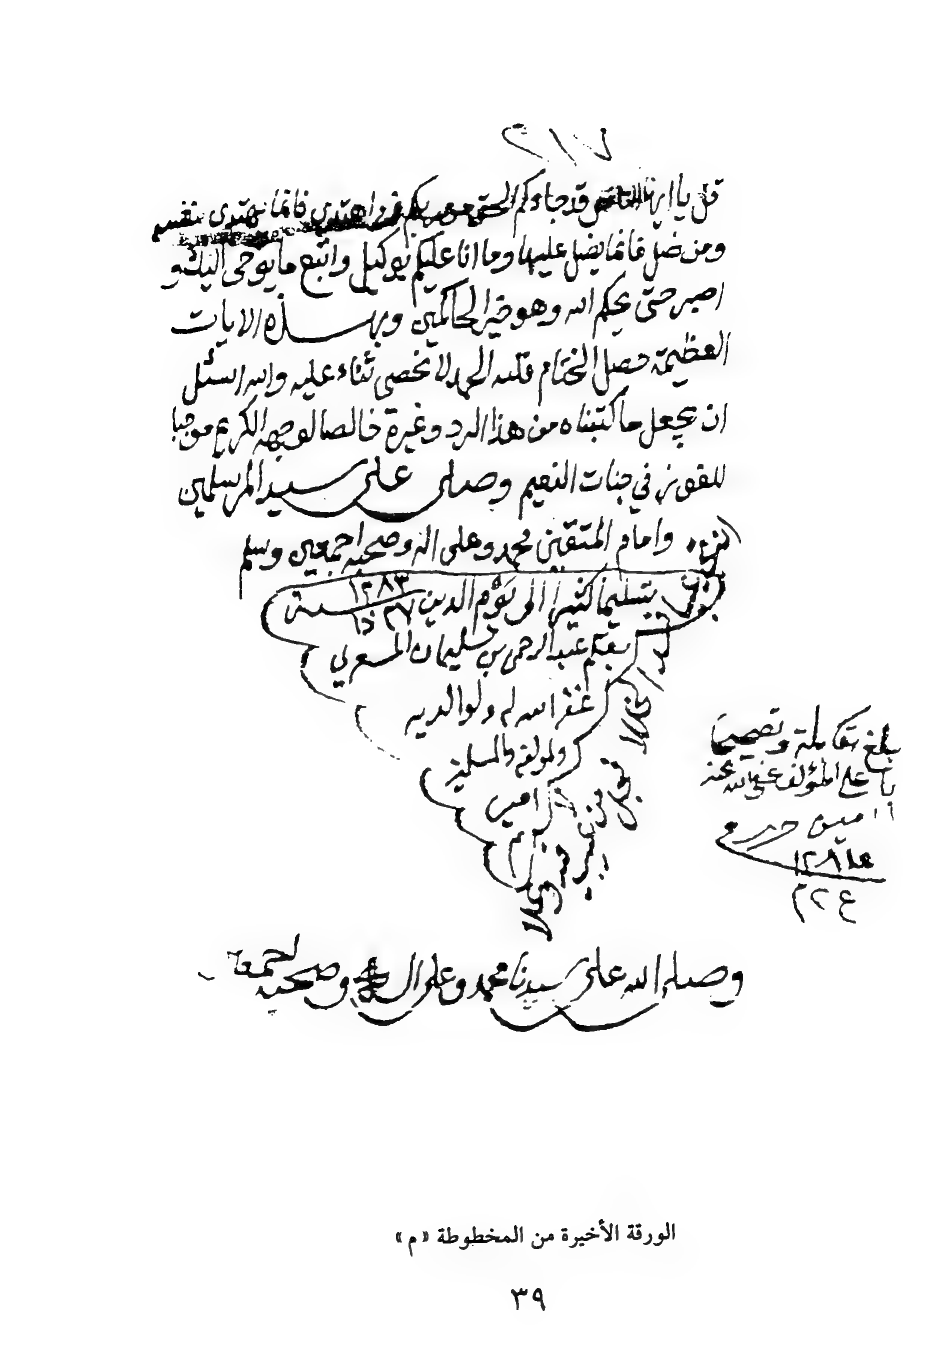 ٢١٧
قل يا ايها الناس قد جاءكم الحق من ربكم فمن اهتدى فانما يهتدى لنفسه
ومن ضل فانما يضل عليها وما انا عليكم بوكيل واتبع ما يوحى اليك و
اصبر حتى يحكم الله وهو خير الحاكمين وبهذه الايات
العظيمة حصل الختام فلله الحمد لا نحصى ثناء عليه والله اسئل
ان يجعل ما كتبناه من هذا الرد وغيره خالصا لوجهه الكريم موجبا
للفوز في جنات النعيم وصلى على سيد المرسلين
وامام المتقين محمد وعلى اله وصحبه اجمعين وسلم
تسليما كثيرا الى يوم الدين ٢٧ ذا سنة ١٢٨٣
بقلم عبد الرحمن بن سليمان المسعري
غفر الله له ولوالديه
ولمؤلفه والمسلمين
امين
بلغ مقابلة وتصحيحا
على المؤلف عفى الله عنه
امين حرر في
وصلى الله على سيدنا محمد وعلى ال وصحبه اجمعين
الورقة الأخيرة من المخطوطة «م»
٣٩